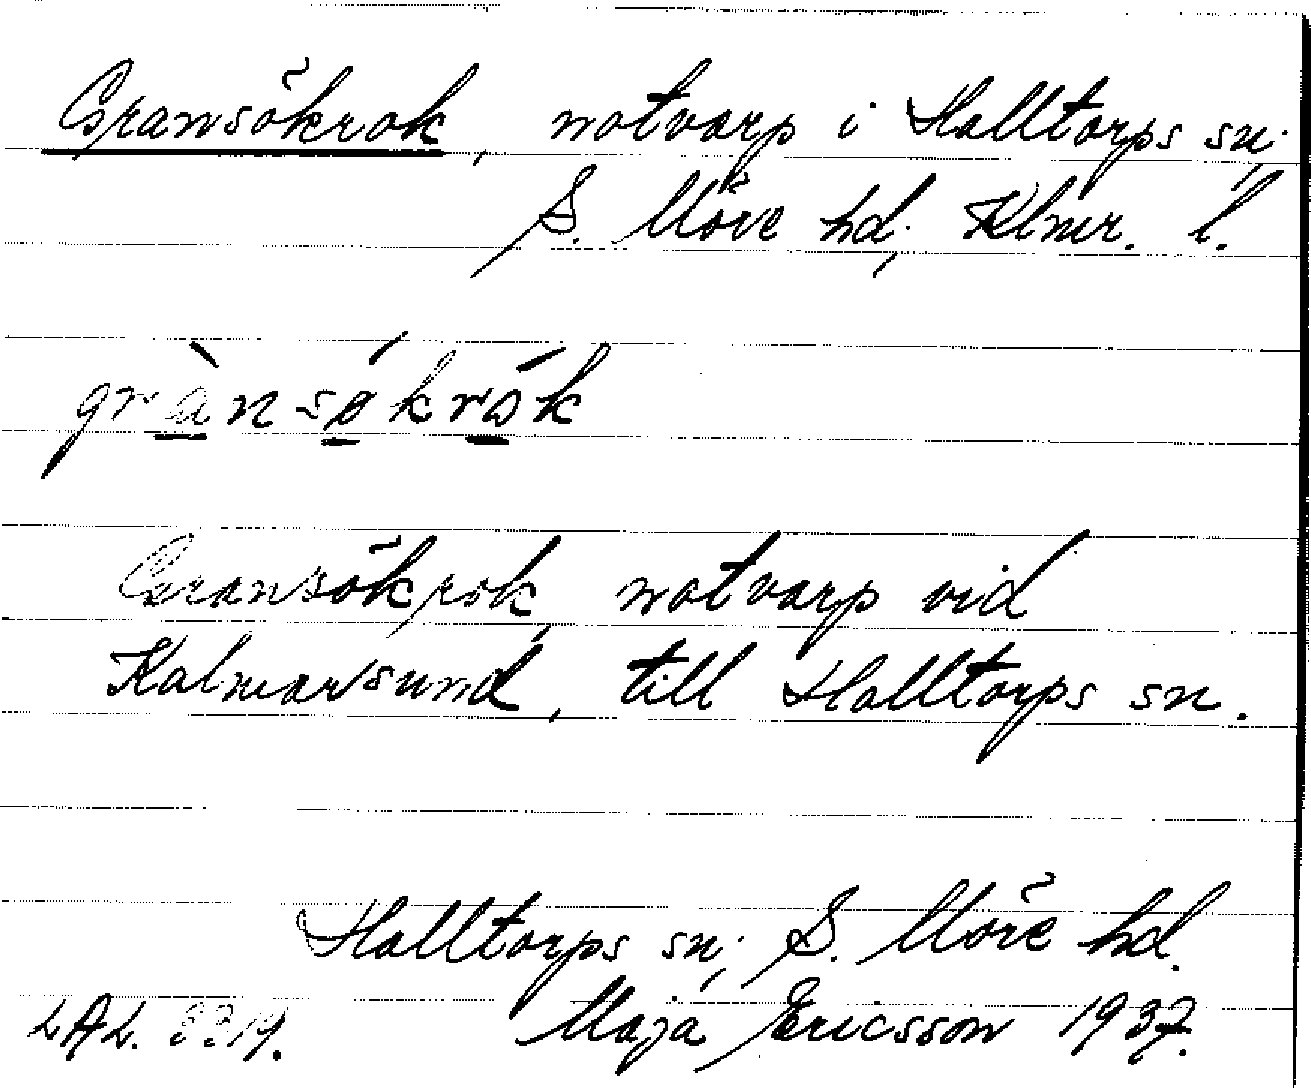 Gransökrok, notvarp i Halltorps sn.,
S. Möre hd., Klmr. l.
grànsǿkrók
Gransökrok notvarp vid
Kalmarsund, till Halltorps sn.
Halltorps sn., S. Möre hd.
LAL. Maja Ericsson 1937.